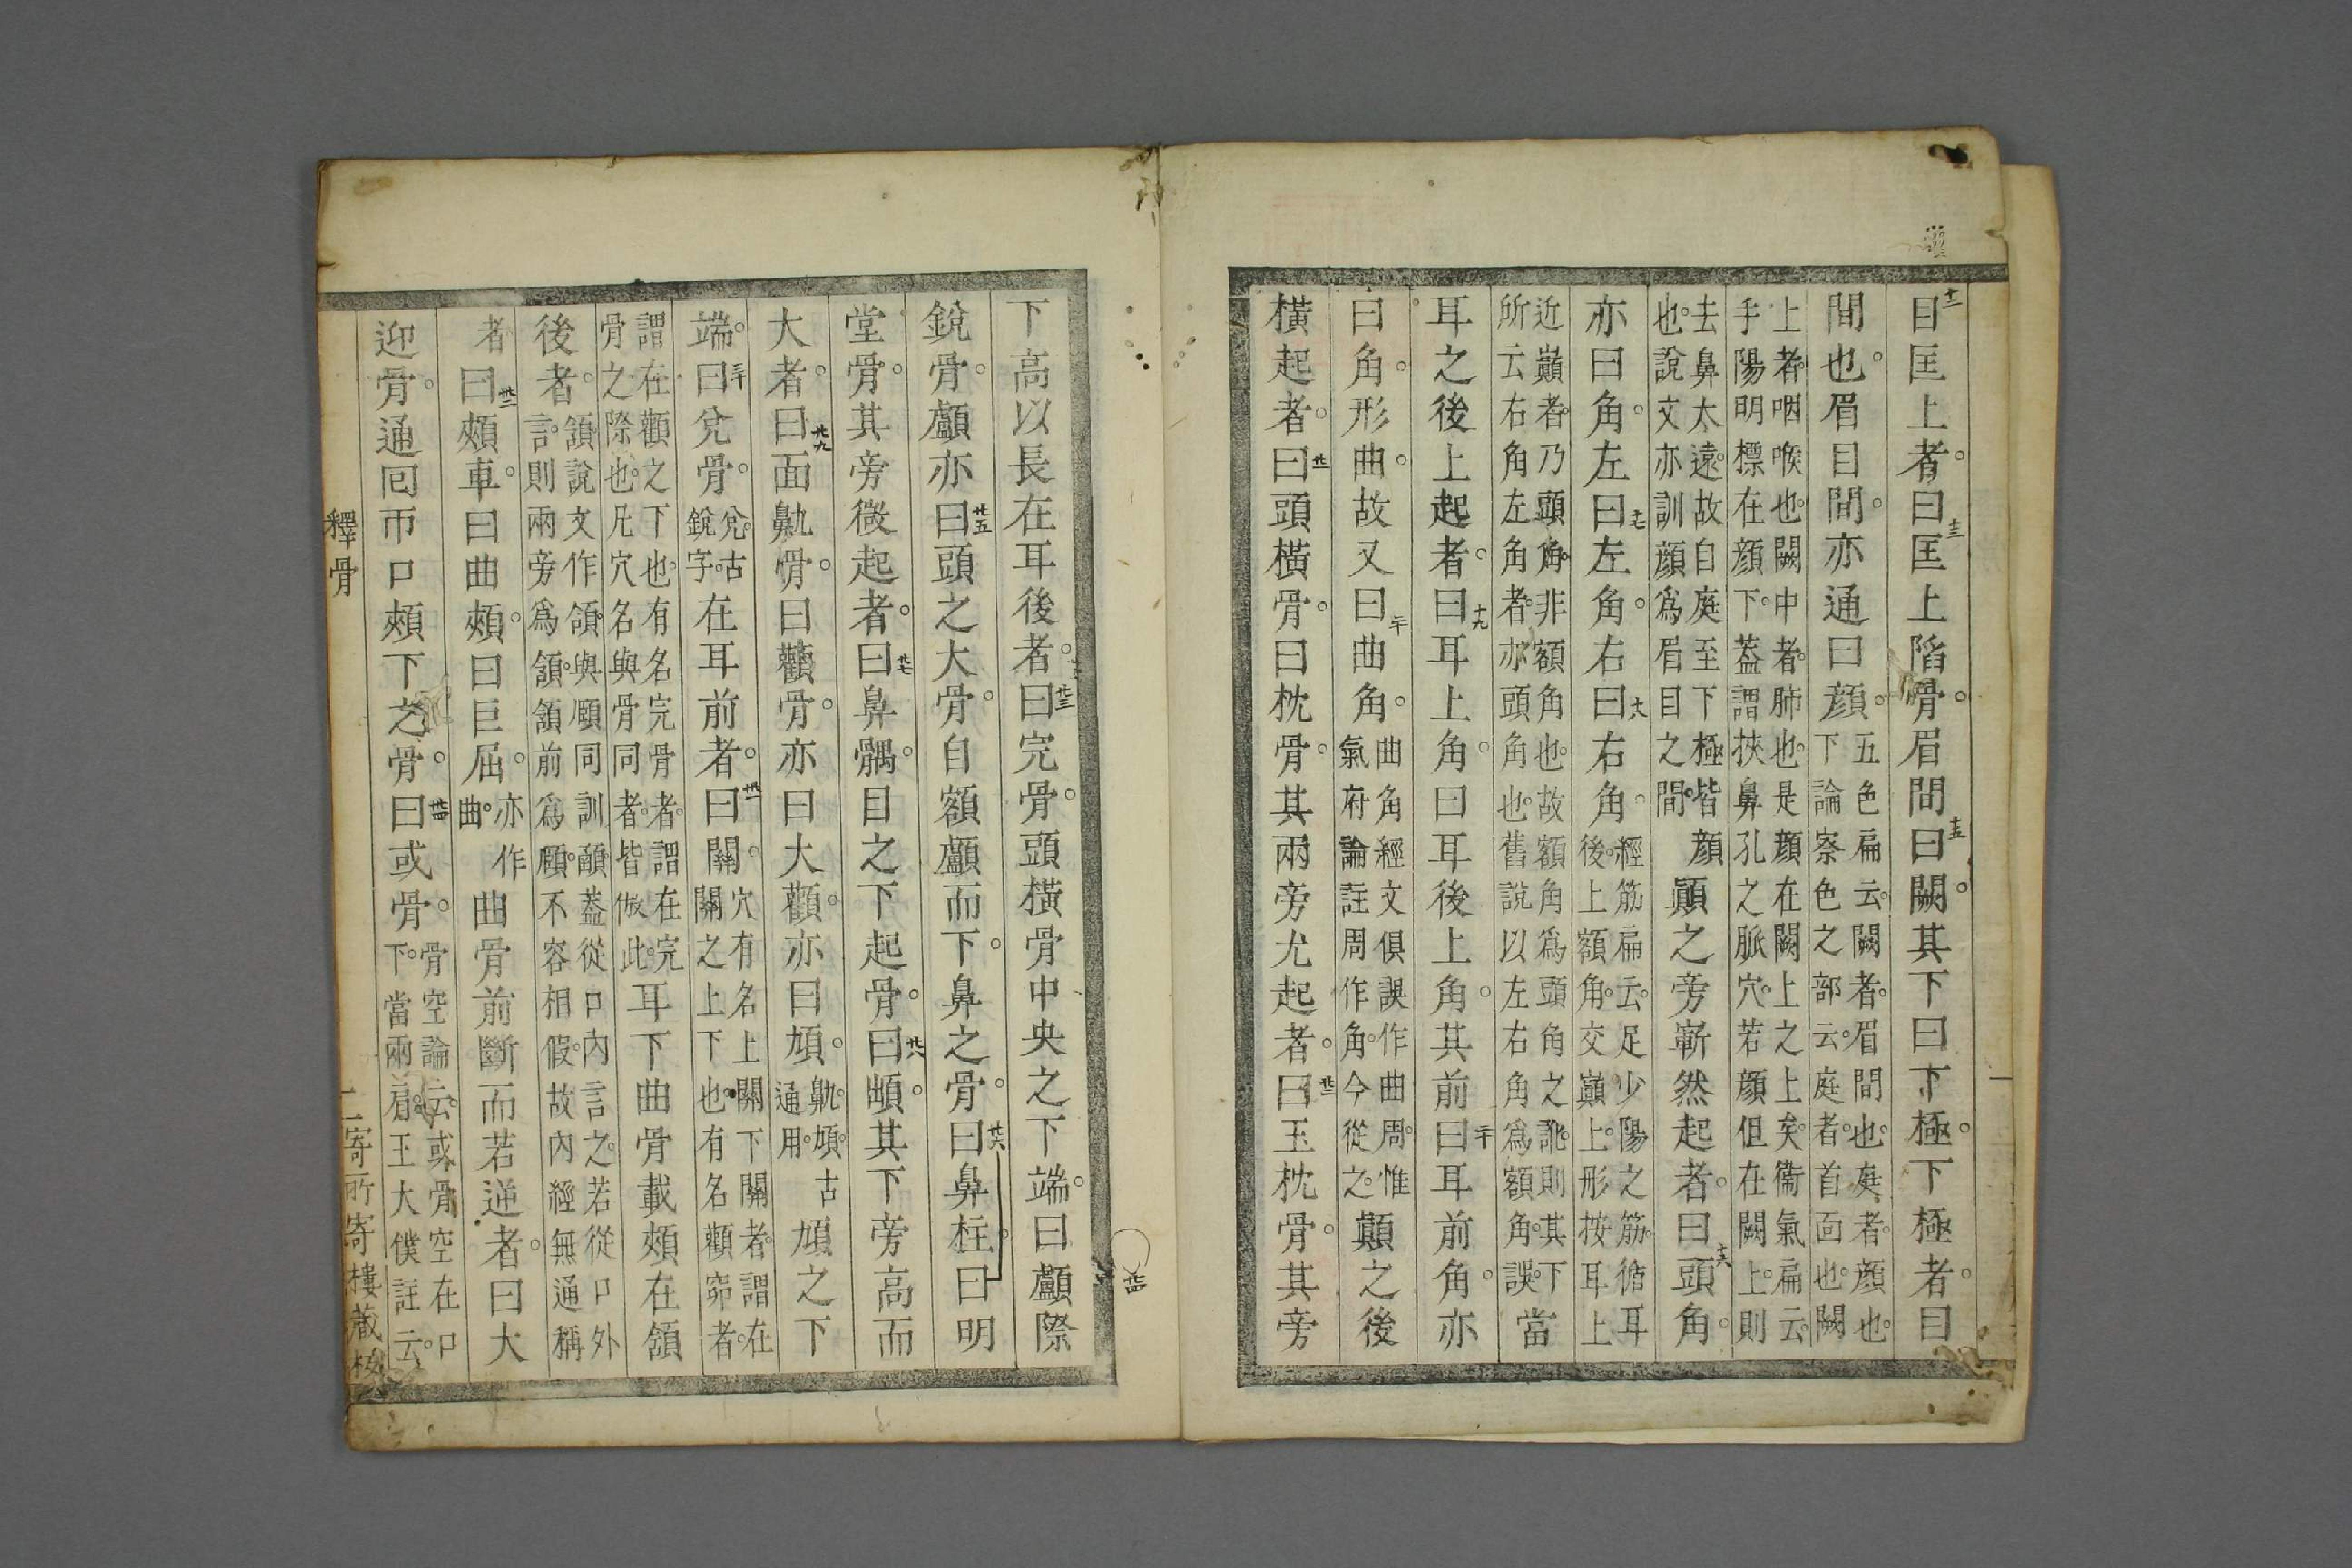 目匡上者。曰匡上陷骨。眉間曰闕。其下曰下極。下極者。曰
間也。眉目間。亦通曰顏。五色扁云。闕者。眉間也。庭者。顏也。
下論察色之部云。庭者。首面也。闕
上者。咽喉也。闕中者。肺也。是顏在闕上之上矣。衞氣扁云。
手陽明標在顏下。蓋謂挾鼻孔之脈穴。若顏但在闕上。則
去鼻太遠。故自庭至下極皆顏
也。說文亦訓顏爲眉目之間。
顚之旁嶄然起者。曰頭角。
亦曰角。左曰左角。右曰右角。經筋扁云。足少陽之筋。循耳
後。上額角。交巔上。形按耳上
近巔者。乃頭角。非額角也。故額角爲頭角之訛。則其下
所云右角左角者。亦頭角也。舊說以左右角爲額角。誤。
當
耳之後上起者。曰耳上角。曰耳後上角。其前曰耳前角。亦
曰角。形曲。故又曰曲角。曲角經文俱誤作曲周。惟
氣府論註周作角。今從之。
顚之後
橫起者。曰頭橫骨。曰枕骨。其兩旁尤起者。曰玉枕骨。其旁
下高以長在耳後者。曰完骨。頭橫骨中央之下端。曰顱際
銳骨。顱亦曰頭之大骨。自額顱而下。鼻之骨。曰鼻柱。曰明
堂骨。其旁微起者。曰鼻髃。目之下起骨。曰䪼。其下旁高而
大者。曰面鼽骨。曰顴骨。亦曰大顴。亦曰䪼。鼽。䪼。古
通用。
䪼之下
端。曰兌骨。兌。古
銳字。
在耳前者。曰關。穴有名上關下關者。謂在
關之上下也。有名顴窌者。
謂在顴之下也。有名完骨者。謂在完
骨之際也。凡穴名與骨同者。皆倣此。
耳下曲骨載頰在頷
後者。頷。說文作頜。與頤同訓顄。蓋從口內言之。若從口外
言。則兩旁爲頷。頷前爲頤。不容相假。故內經無通稱
者。
曰頰車。曰曲頰。曰巨屈。亦作
曲。
曲骨前斷而若逆者。曰大
迎骨。通回帀口頰下之骨。曰或骨。骨空論云。或骨空在口
下。當兩肩。王大僕註云。
釋骨
二
寄所寄樓藏板
十二
十三
十五
十六
十七
十八
十九
二十